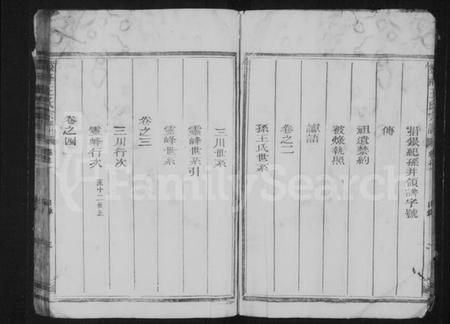 捐銀紀孫并領牌字號
傳
祖遺禁約
被燬執照
誥
卷之二
孫王氏世系
三川世系
靈峰世系引
靈峰世系
卷之三
三川行次
靈峰行次 至十二世上
卷之四
FamilySearch